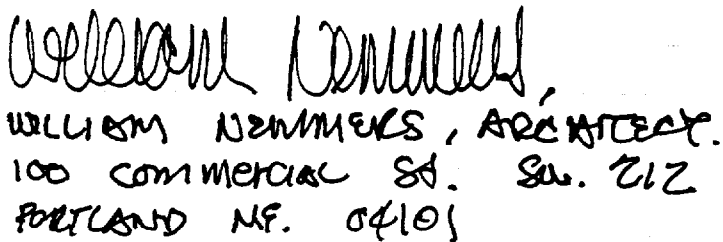 William Nemmers,
WILLIAM NEMMERS, ARCHITECT.
100 COMMERCIAL St. Su. 212
PORTLAND ME. 04101